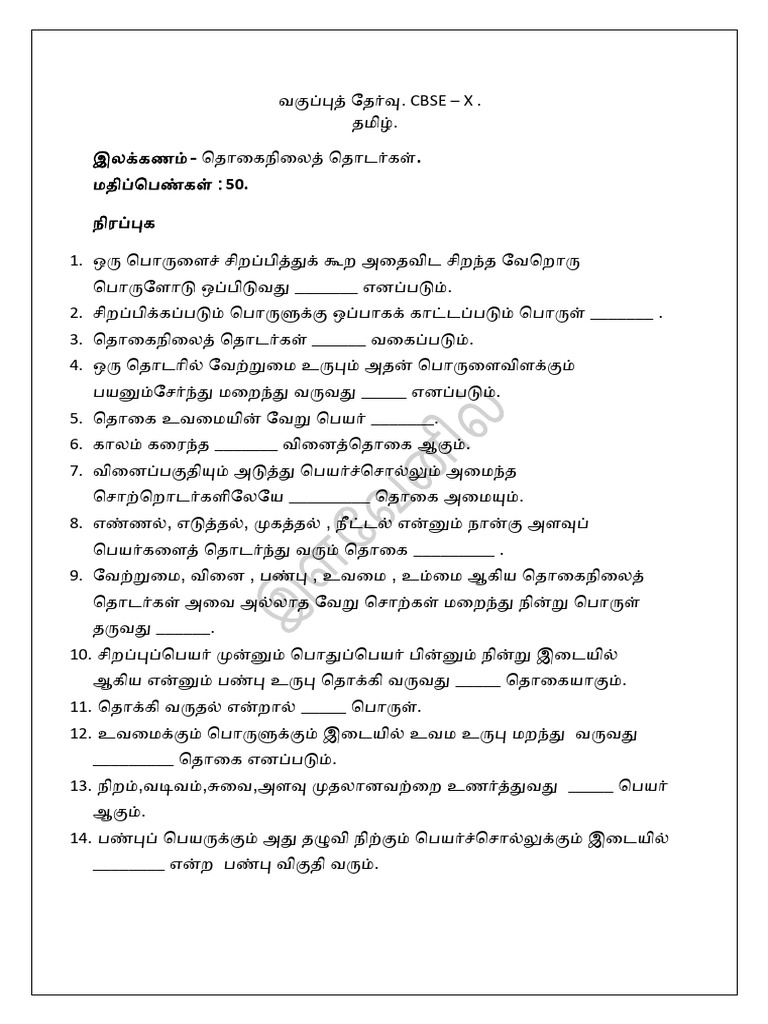 வகுப்புத் தேர்வு. CBSE – X .
தமிழ்.
இலக்கணம் - தொகைநிலைத் தொடர்கள்.
மதிப்பெண்கள் : 50.
நிரப்புக
1. ஒரு பொருளைச் சிறப்பித்துக் கூற அதைவிட சிறந்த வேறொரு
பொருளோடு ஒப்பிடுவது ________ எனப்படும்.
2. சிறப்பிக்கப்படும் பொருளுக்கு ஒப்பாகக் காட்டப்படும் பொருள் ________ .
3. தொகைநிலைத் தொடர்கள் ______ வகைப்படும்.
4. ஒரு தொடரில் வேற்றுமை உருபும் அதன் பொருளைவிளக்கும்
பயனும்சேர்ந்து மறைந்து வருவது _____ எனப்படும்.
5. தொகை உவமையின் வேறு பெயர் _______.
6. காலம் கரைந்த _______ வினைத்தொகை ஆகும்.
7. வினைப்பகுதியும் அடுத்து பெயர்ச்சொல்லும் அமைந்த
சொற்றொடர்களிலேயே _________ தொகை அமையும்.
8. எண்ணல், எடுத்தல், முகத்தல் , நீட்டல் என்னும் நான்கு அளவுப்
பெயர்களைத் தொடர்ந்து வரும் தொகை _________ .
9. வேற்றுமை, வினை , பண்பு , உவமை , உம்மை ஆகிய தொகைநிலைத்
தொடர்கள் அவை அல்லாத வேறு சொற்கள் மறைந்து நின்று பொருள்
தருவது ______.
10. சிறப்புப்பெயர் முன்னும் பொதுப்பெயர் பின்னும் நின்று இடையில்
ஆகிய என்னும் பண்பு உருபு தொக்கி வருவது _____ தொகையாகும்.
11. தொக்கி வருதல் என்றால் _____ பொருள்.
12. உவமைக்கும் பொருளுக்கும் இடையில் உவம உருபு மறந்து வருவது
_________ தொகை எனப்படும்.
13. நிறம்,வடிவம்,சுவை,அளவு முதலானவற்றை உணர்த்துவது _____ பெயர்
ஆகும்.
14. பண்புப் பெயருக்கும் அது தழுவி நிற்கும் பெயர்ச்சொல்லுக்கும் இடையில்
________ என்ற பண்பு விகுதி வரும்.
இளவேனில்